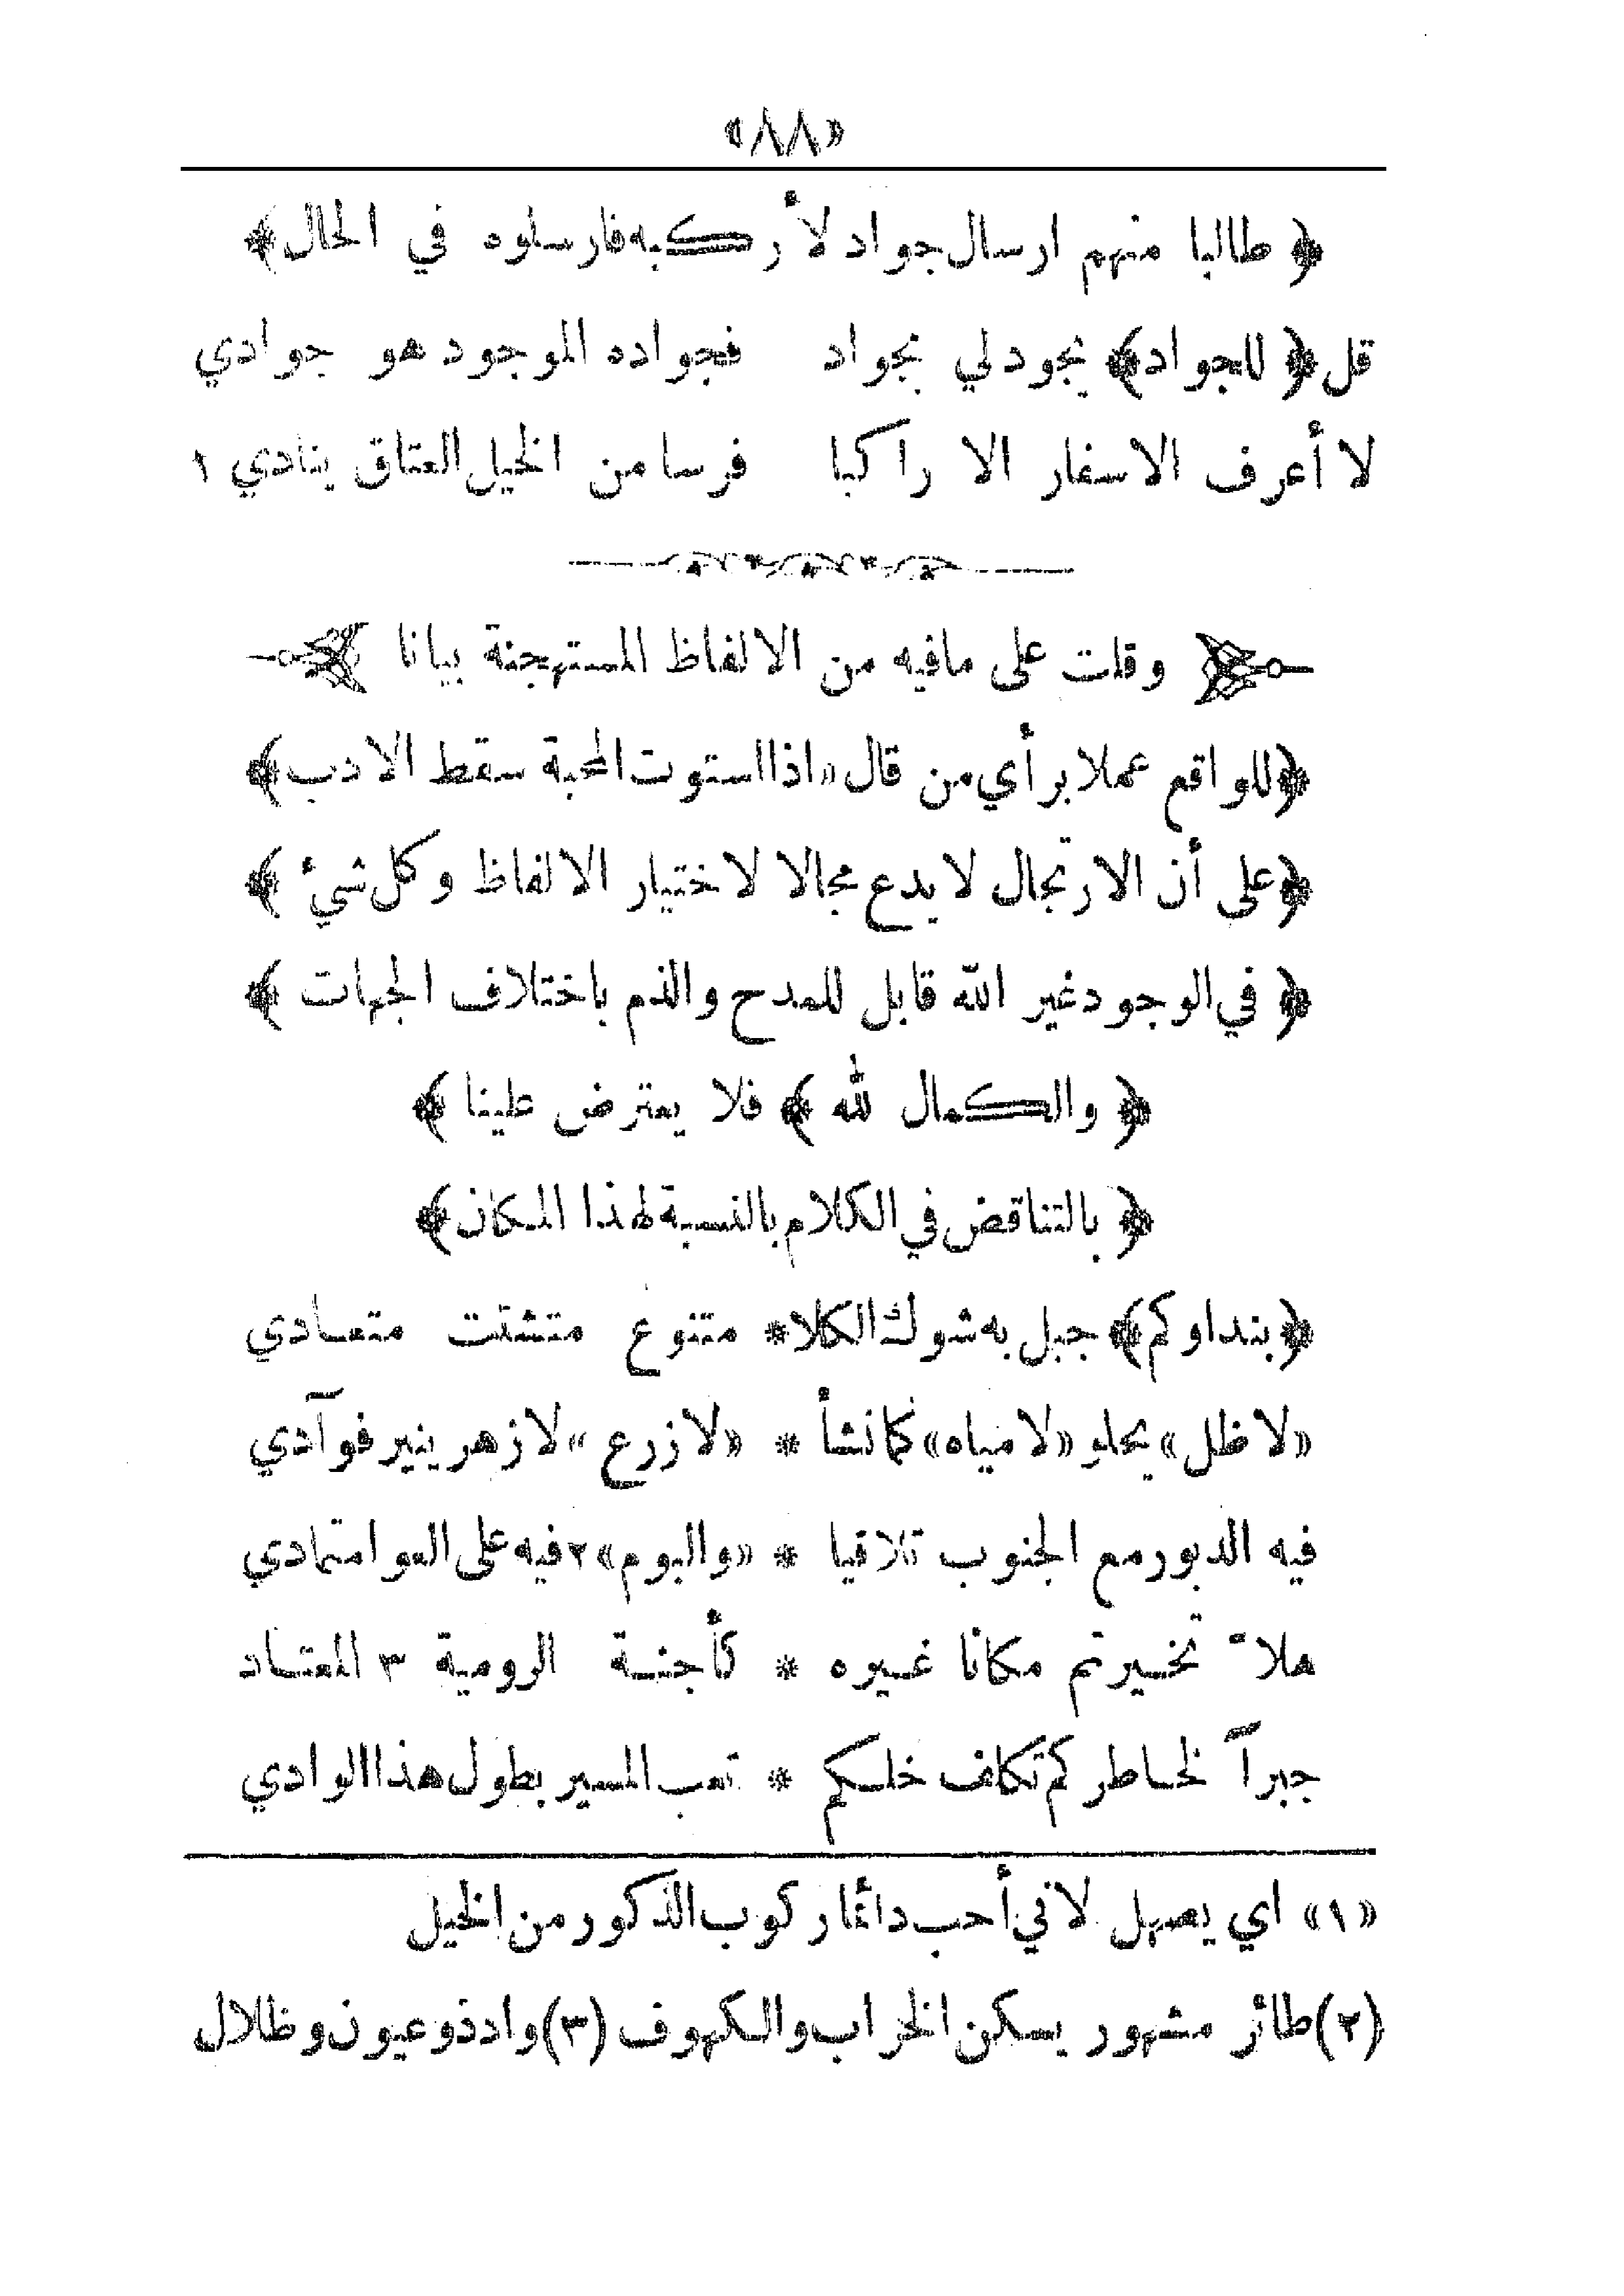 «٨٨»
﴿ طالبا منهم ارسال جواد لأركبه فارسلوه في الحال ﴾
قل ﴿ للجواد ﴾ يجود لي بجواد فجواده الموجود هو جوادي
لا أعرف الاسفار الا راكبا فرسا من الخيل العتاق ينادي ١
وقلت على مافيه من الالفاظ المستهجنة بيانا
﴿ للواقع عملا برأي من قال «اذا استوت المحبة سقط الادب ﴾
﴿ على أن الارتجال لا يدع مجالا لاختيار الالفاظ وكل شيء ﴾
﴿ في الوجود غير الله قابل للمدح والذم باختلاف الجهات ﴾
﴿ والكمال لله ﴾ فلا يعترض علينا ﴾
﴿ بالتناقض في الكلام بالنسبة لهذا المكان ﴾
﴿ بنداوكم ﴾ جبل به شوك الكلا * متنوع متشتت متعادي
«لا ظل» يحلو «لا مياه» كما نشأ * «لا زرع» لا زهر ينير فوآدي
فيه الدبور مع الجنوب تلاقيا * «والبوم» ٢ فيه على العوا متمادي
هلا تخيرتم مكانا غيره * كأجنة الرومية ٣ المعتاد
جبراً لخاطركم تكلف خلكم * تعب المسير بطول هذا الوادي
«١» اي يصهل لاني أحب دائما ركوب الذكور من الخيل
(٢) طائر مشهور يسكن الخراب والكهوف (٣) واد ذو عيون وظلال